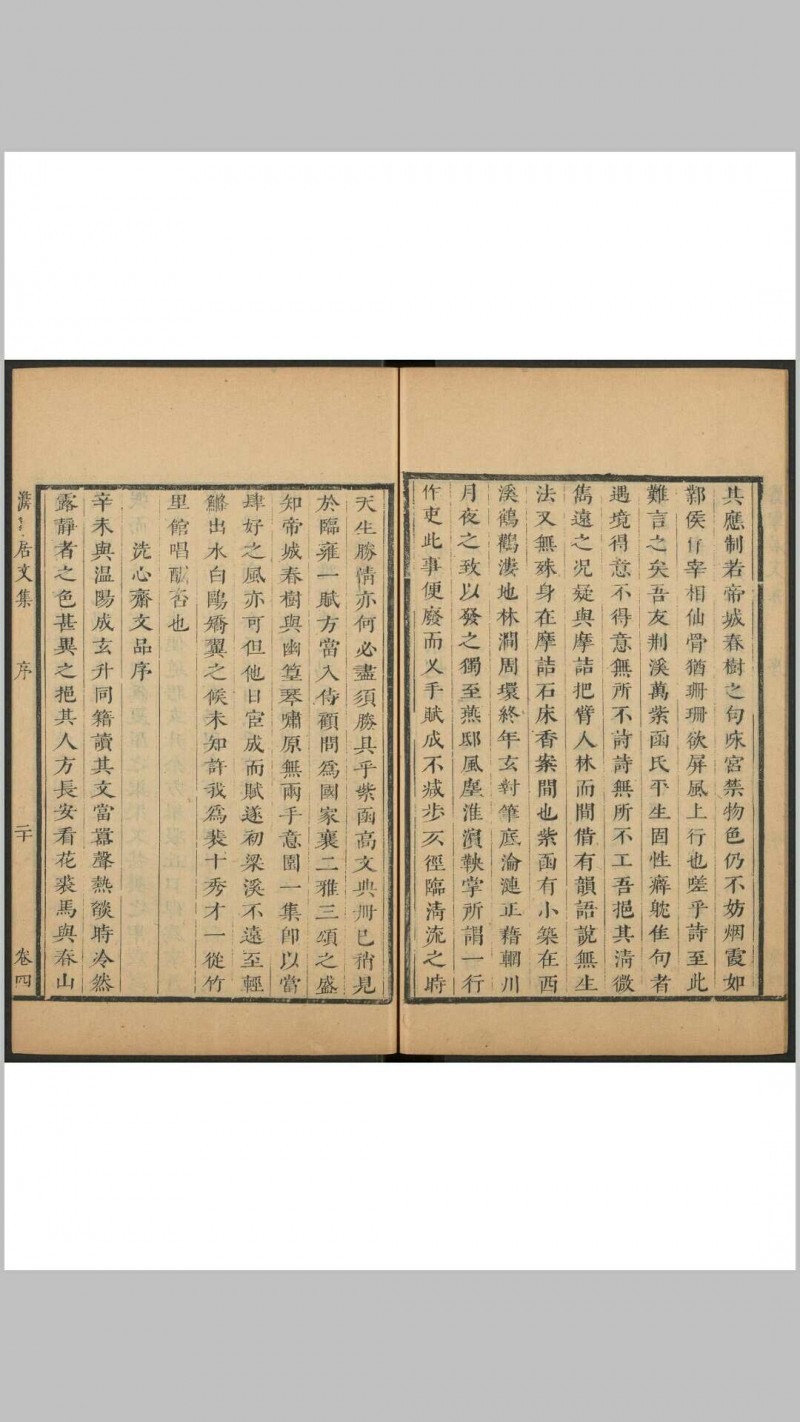 其應制若帝城春樹之句咏宮禁物色仍不妨烟霞如
鄴侯作宰相仙骨猶珊珊欲屏風上行也嗟乎詩至此
難言之矣吾友荆溪萬紫函氏平生固性癖躭佳句者
遇境得意不得意無所不詩詩無所不工吾挹其清微
雋遠之况疑與摩詰把臂入林而間偕有韻語說無生
法又無殊身在摩詰石床香案間也紫函有小築在西
溪鶴鸛淒地林澗周環終年玄對筆底淪漣正藉輞川
月夜之致以發之獨至燕邸風塵淮濱鞅掌所謂一行
作吏此事便廢而乂手賦成不减步亥徑臨清流之時
天生勝情亦何必盡須勝具乎紫函高文典冊已稍見
於臨雍一賦方當入侍顧問爲國家襄二雅三頌之盛
知帝城春樹與幽篁琴嘯原無兩手意園一集卽以當
肆好之風亦可但他日宦成而賦遂初梁溪不遠至輕
鯈出水白鷗矯翼之候未知許我爲裴十秀才一從竹
里館唱酬否也
洗心齋文品序
辛未與温陽成玄升同籍讀其文當囂聲熱燄時冷然
露靜者之色甚異之挹其人方長安看花裘馬與春山
居文集 序 二十 卷四